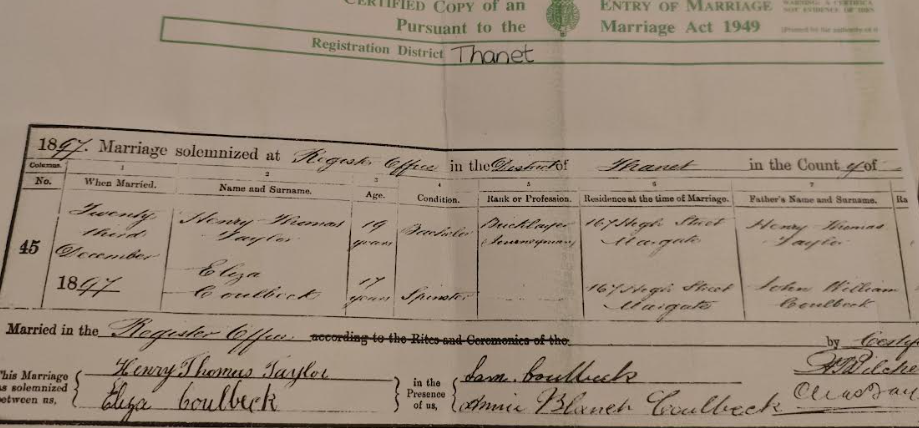 CERTIFIED COPY OF AN ENTRY OF MARRIAGE
Pursuant to the Marriage Act 1949
Registration District Thanet
1897. Marriage solemnized at Register Office in the District of Thanet in the County of
Columns. 1 2 3 4 5 6 7
No. When Married. Name and Surname. Age. Condition. Rank or Profession. Residence at the time of Marriage. Father's Name and Surname. Ra
45
Twenty third December 1897
Henry Thomas Taylor
19 years
Bachelor
Bricklayer (Journeyman)
167 High Street Margate
Henry Thomas Taylor
Eliza Coulbeck
17 years
Spinster
167 High Street Margate
John William Coulbeck
Married in the Register Office according to the Rites and Ceremonies of the by Certif
This Marriage was solemnized between us,
Henry Thomas Taylor
Eliza Coulbeck
in the Presence of us,
Sam. Coulbeck
Annie Blanch Coulbeck